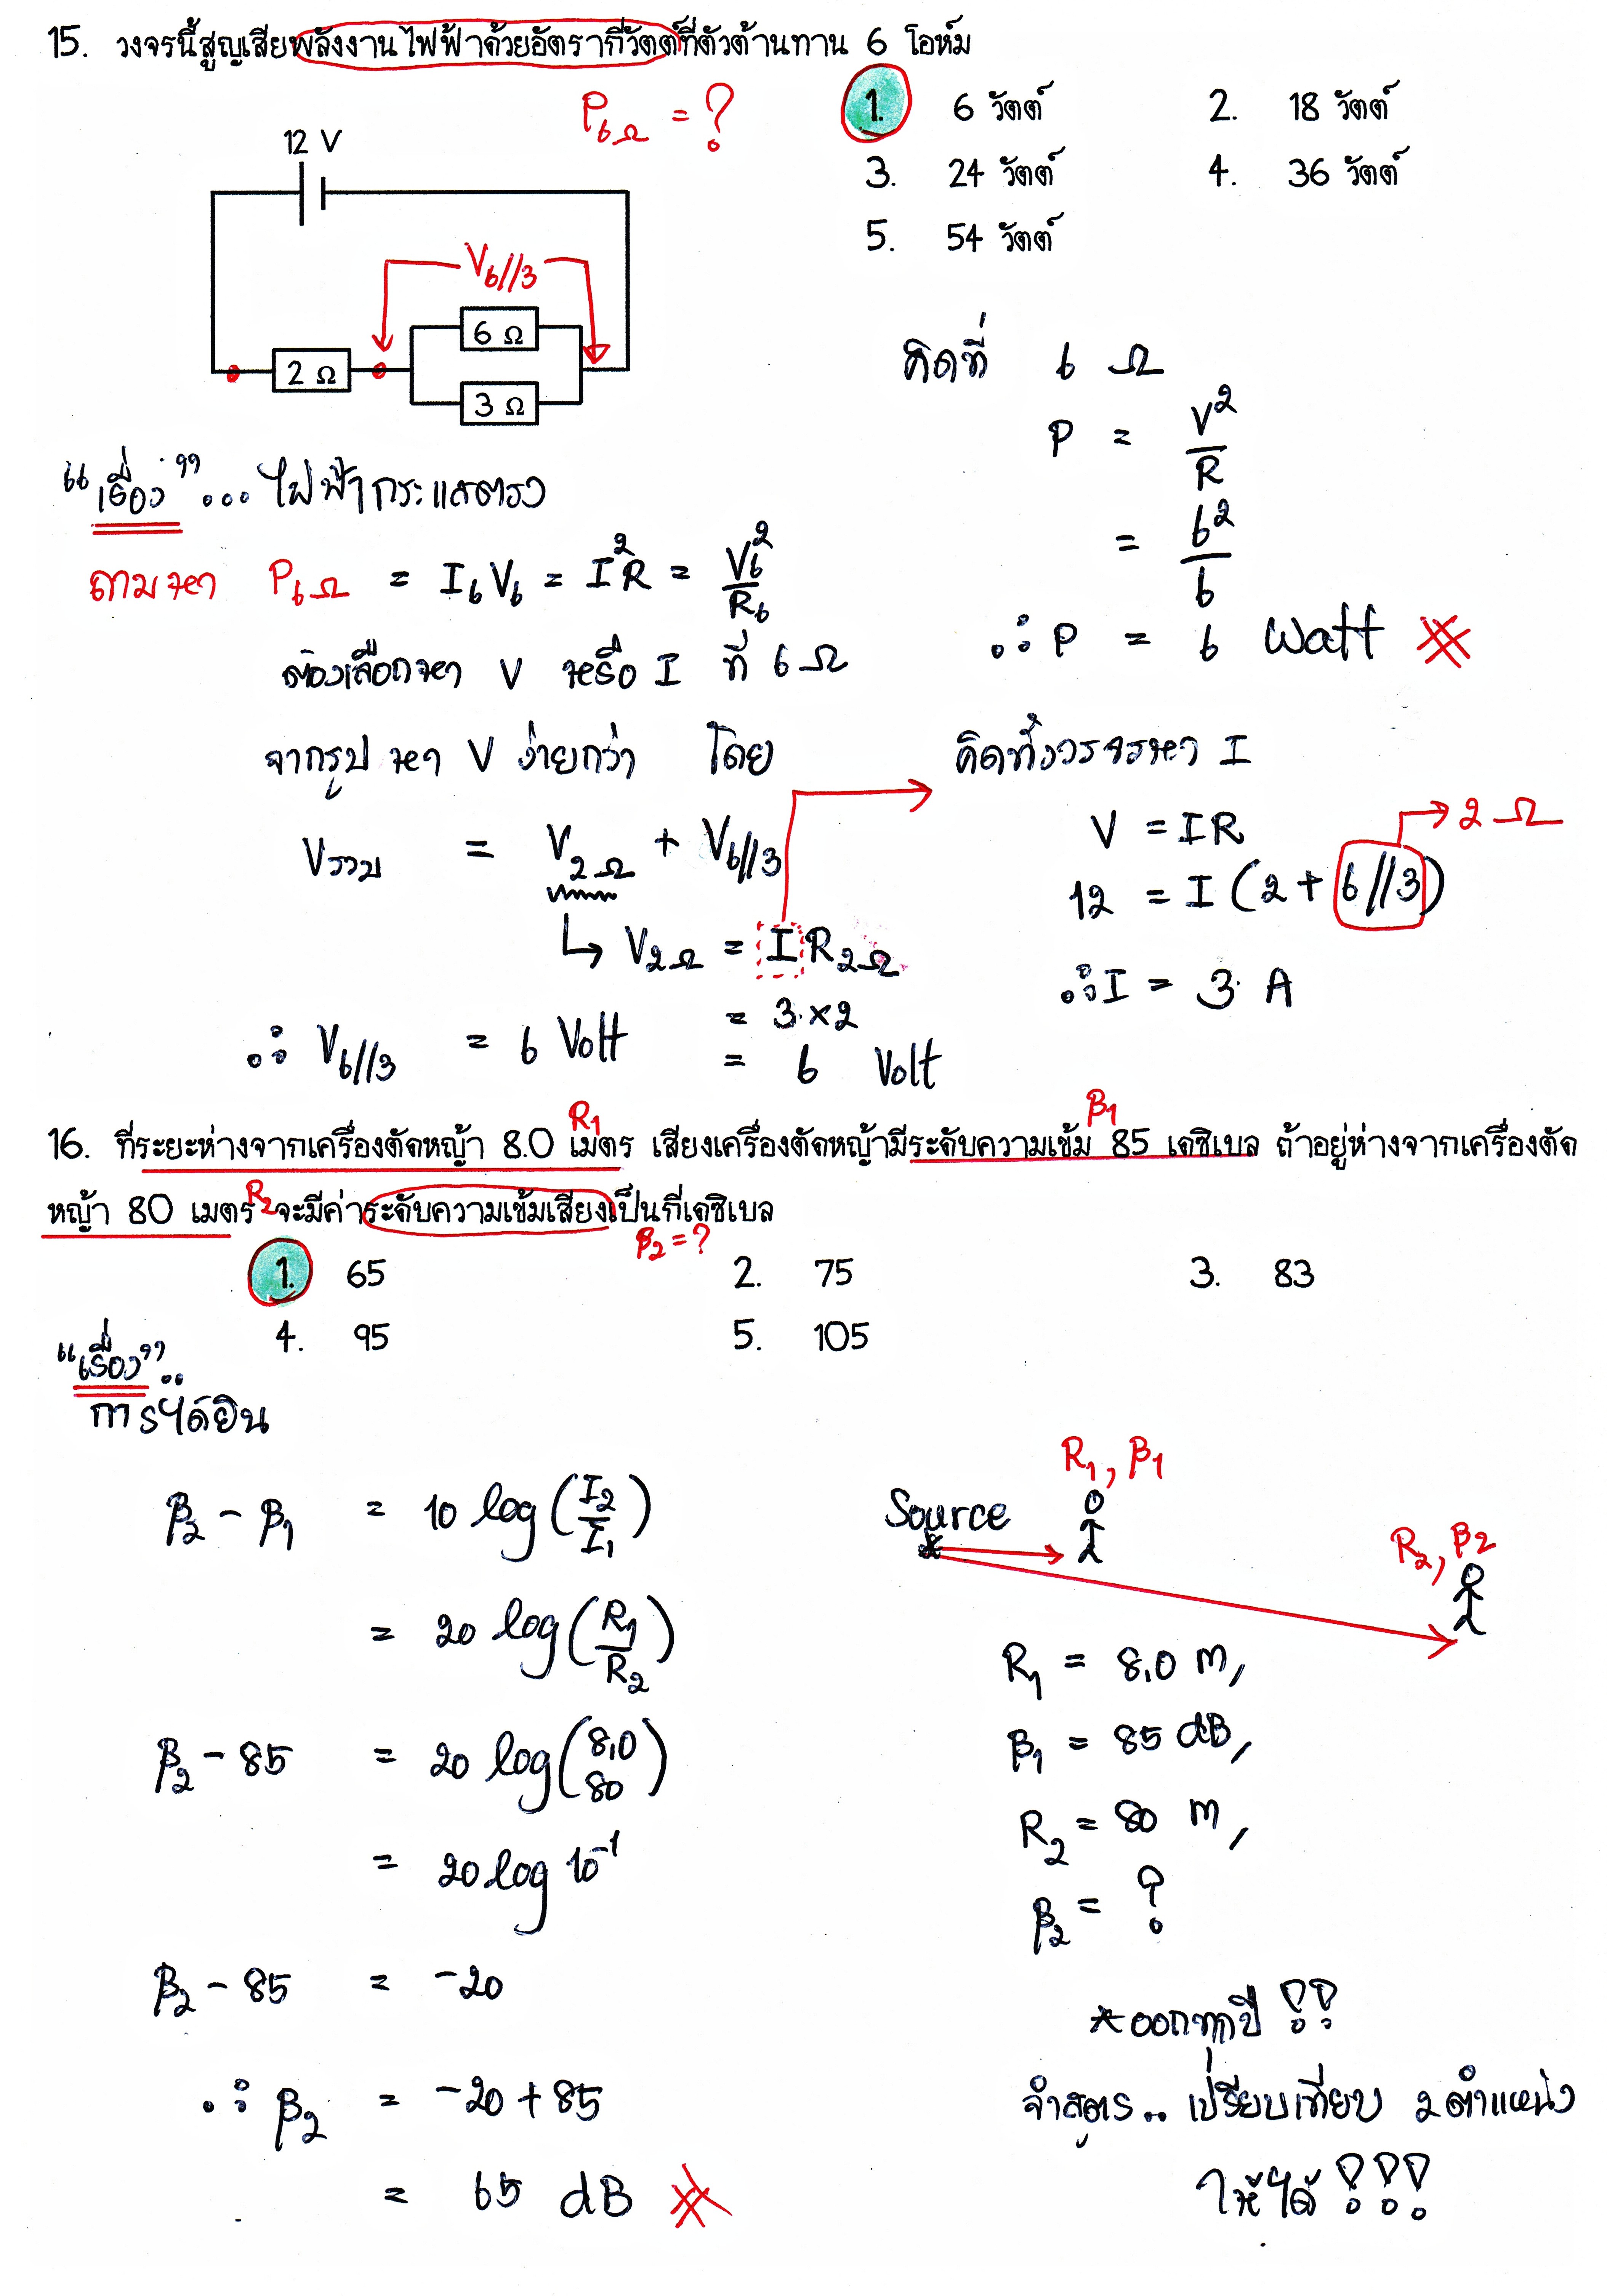 15. วงจรนี้สูญเสียพลังงานไฟฟ้าด้วยอัตรากี่วัตต์ที่ตัวต้านทาน 6 โอห์ม
P6Ω = ?
1. 6 วัตต์ 2. 18 วัตต์
3. 24 วัตต์ 4. 36 วัตต์
5. 54 วัตต์
12 V
V6//3
6 Ω
2 Ω
3 Ω
"เรื่อง"... ไฟฟ้ากระแสตรง
ถามหา P6Ω = I6 V6 = I²R = V6²/R6
ต้องเลือกหา V หรือ I ที่ 6 Ω
จากรูป หา V ง่ายกว่า โดย
Vรวม = V2Ω + V6//3
↳ V2Ω = I R2Ω
= 3 × 2
= 6 Volt
∴ V6//3 = 6 Volt
คิดที่ 6 Ω
P = V²/R
= 6²/6
∴ P = 6 Watt
คิดทั้งวงจรหา I
V = IR
12 = I (2 + 6//3)
→ 2 Ω
∴ I = 3 A
R1 β1
16. ที่ระยะห่างจากเครื่องตัดหญ้า 8.0 เมตร เสียงเครื่องตัดหญ้ามีระดับความเข้ม 85 เดซิเบล ถ้าอยู่ห่างจากเครื่องตัด
หญ้า 80 เมตร R2 จะมีค่าระดับความเข้มเสียงเป็นกี่เดซิเบล
β2 = ?
1. 65 2. 75 3. 83
4. 95 5. 105
"เรื่อง"..
การได้ยิน
β2 - β1 = 10 log(I2/I1)
= 20 log(R1/R2)
β2 - 85 = 20 log(8.0/80)
= 20 log 10⁻¹
β2 - 85 = -20
∴ β2 = -20 + 85
= 65 dB
R1, β1
Source
R2, β2
R1 = 8.0 m,
β1 = 85 dB,
R2 = 80 m,
β2 = ?
*ออกทุกปี !!
จำสูตร.. เปรียบเทียบ 2 ตำแหน่ง
ให้ได้ !!!